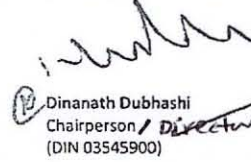 Dinanath Dubhashi
Chairperson / Director
(DIN 03545900)